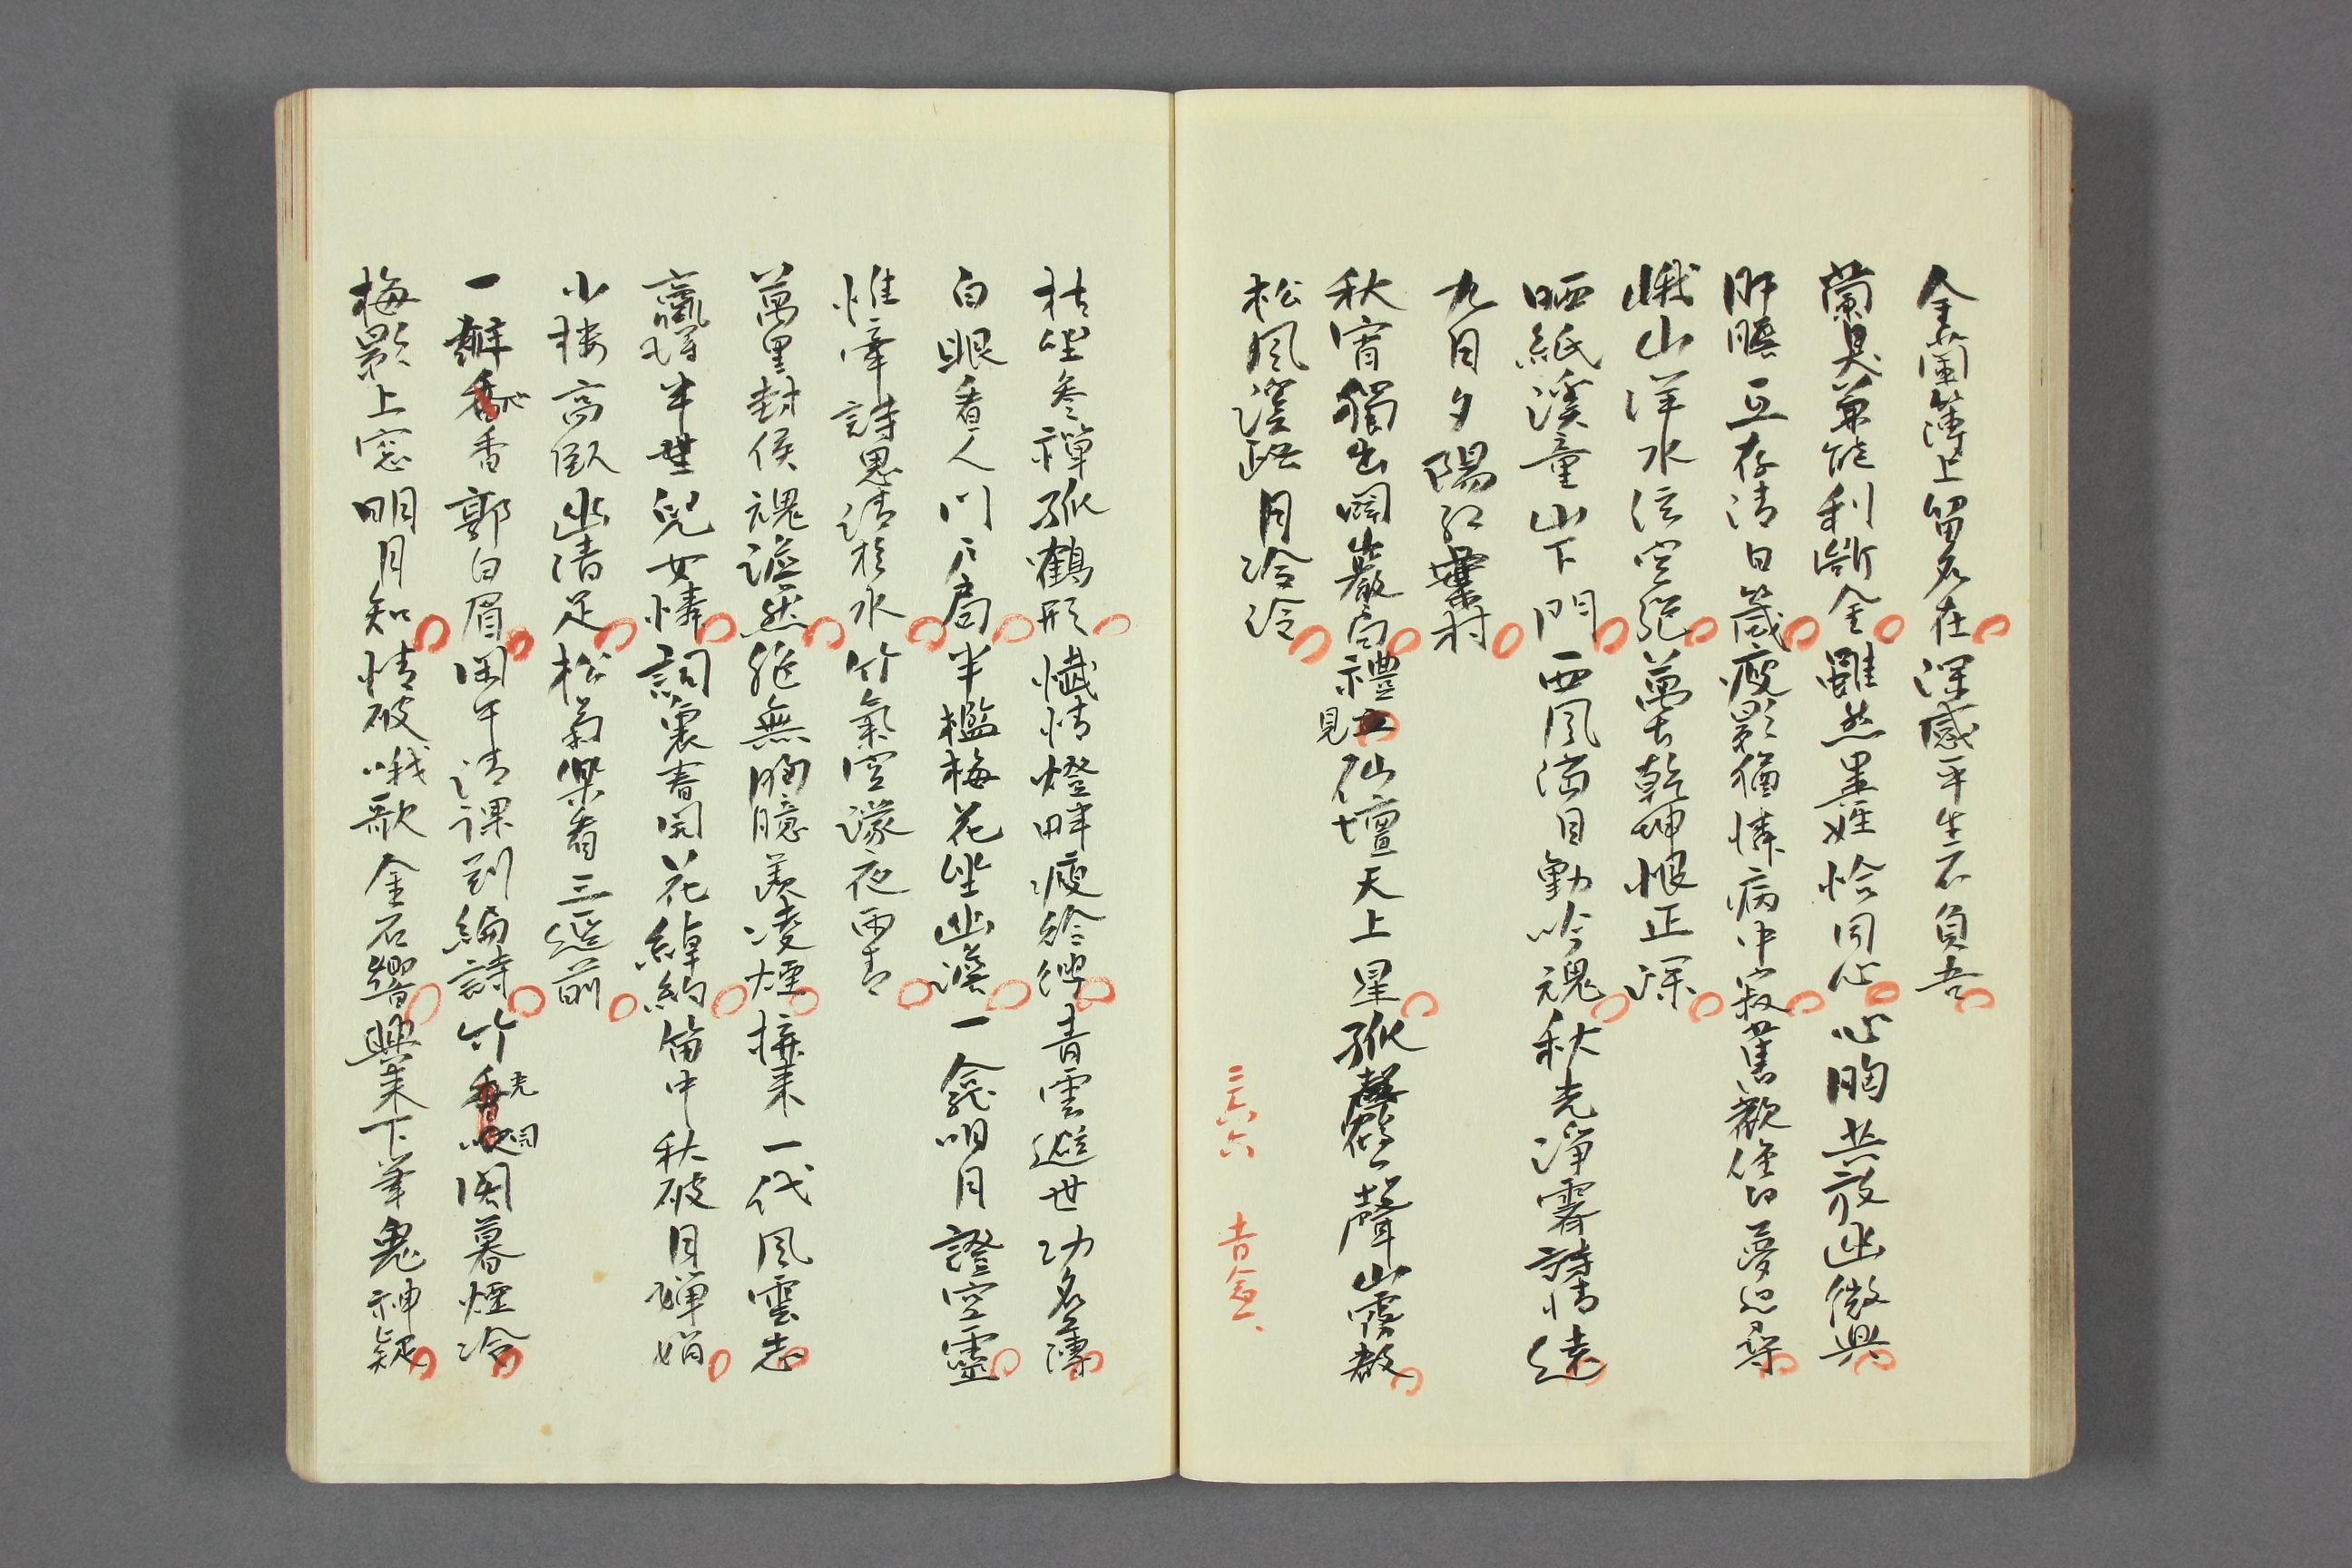 金蘭簿上留名在深感平生不負吾
蘭臭兼能利斷金雖然異姓恰同心心胸共寂幽微興
肝膽互存清白箴瘦影猶憐病中寂舊歡僅向夢邊尋
峨山洋水絃空絕萬古乾坤恨正深
晒紙溪童山下門西風滿目動吟魂秋光淨霽詩情遠
九月夕陽紅葉村
秋宵獨出叩巖扃禮見仙壇天上星孤鶴聲山靄散
松風溪路月冷冷
二六六 吉金、
枯坐參禪孤鶴形懺情燈畔瘦玲俜青雲遊世功名薄
白眼看人門戶扃半檻梅花坐幽溪一龕明月證空靈
惟幸詩思清於水竹氣空濛夜雨青
萬里封侯魂漭然胝無胸臆羨凌煙擲來一代風雲志
贏得半世兒女憐詞裏春開花綽約笛中秋破月嬋娟
小樓高臥幽清足松菊樂看三逕前
一瓣心香郭白眉閑午清課到編詩竹光閣暮煙冷
梅影上窓明月知情破哦歌金石響興來下筆鬼神疑